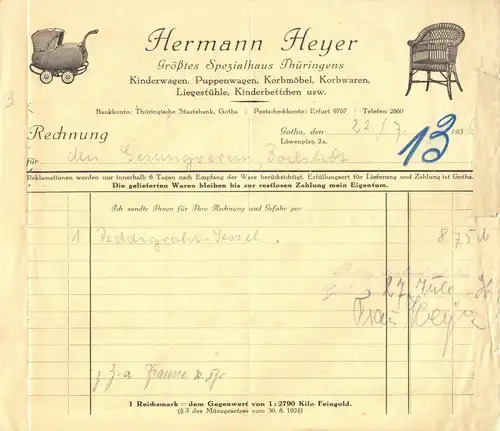 Hermann Heyer
Größtes Spezialhaus Thüringens
Kinderwagen, Puppenwagen, Korbmöbel, Korbwaren,
Liegestühle, Kinderbettchen usw.
3
Bankkonto: Thüringische Staatsbank, Gotha | Postscheckkonto: Erfurt 9767 | Telefon 2860
Rechnung
Gotha, den 22/7. 1936
Löwenplatz 2a.
13
für den Gesangverein,
Reklamationen werden nur innerhalb 6 Tagen nach Empfang der Ware berücksichtigt. Erfüllungsort für Lieferung und Zahlung ist Gotha.
Die gelieferten Waren bleiben bis zur restlosen Zahlung mein Eigentum.
Ich sandte Ihnen für Ihre Rechnung und Gefahr per
1 Peddigrohr-Sessel. 8.75
27 Juli 36
Frau Heyer
1 Reichsmark = dem Gegenwert von 1:2790 Kilo Feingold.
(§ 3 des Münzgesetzes vom 30. 8. 1924)